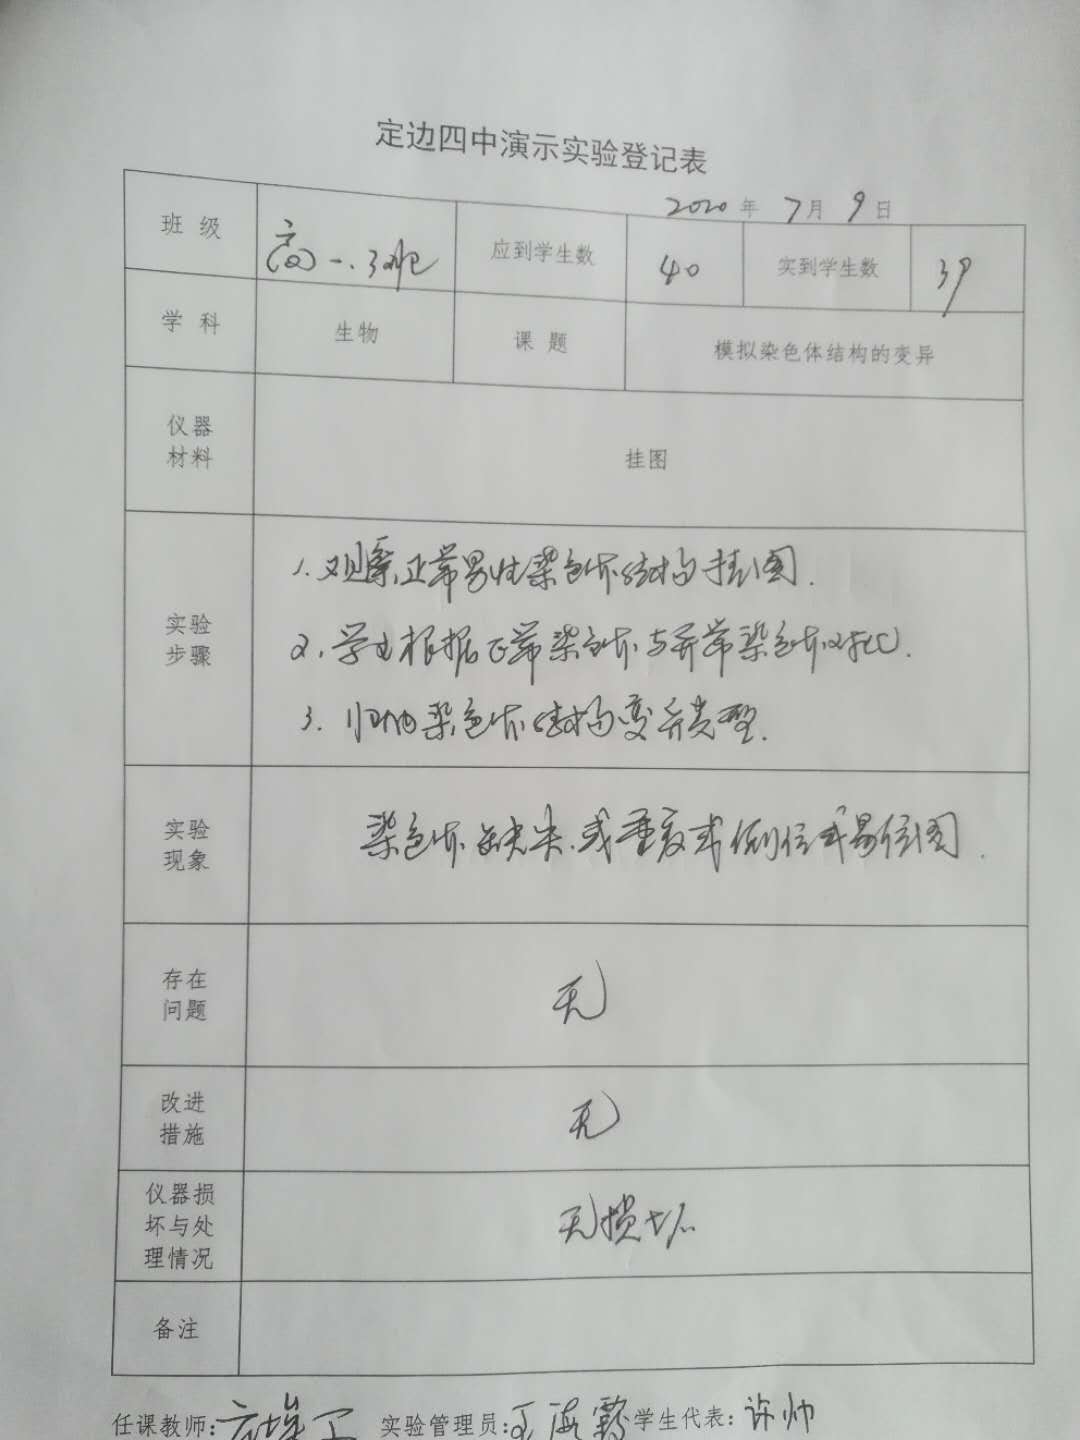 定边四中演示实验登记表
2020年 7月 9日
班 级 高一.3班 应到学生数 40 实到学生数 39
学 科 生物 课 题 模拟染色体结构的变异
仪器
材料
挂图
实验
步骤
1.观察正常男性染色体结构挂图.
2.学生根据正常染色体与异常染色体对比.
3.归纳染色体结构变异类型.
实验
现象
染色体缺失.或重复或倒位或易位图.
存在
问题
无
改进
措施
无
仪器损
坏与处
理情况
无损坏
备注
任课教师: 实验管理员:王海霞 学生代表:许帅